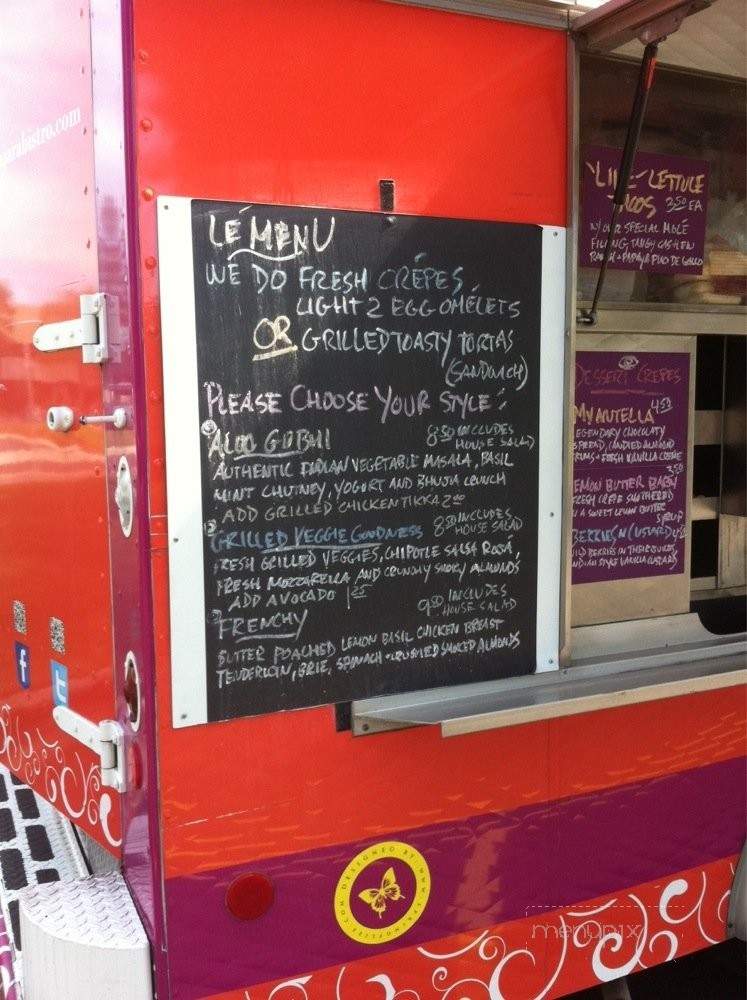 LÉ MENU
WE DO FRESH CRÉPES,
LIGHT 2 EGG OMÉLETS
OR GRILLED TOASTY TORTAS
(SANDWICH)
PLEASE CHOOSE YOUR STYLE:
ALOO GOBHI 8.50 INCLUDES
HOUSE SALAD
AUTHENTIC INDIAN VEGETABLE MASALA, BASIL
MINT CHUTNEY, YOGURT AND BHUJIA CRUNCH
ADD GRILLED CHICKEN TIKKA 2.00
GRILLED VEGGIE GOODNESS 8.50 INCLUDES
HOUSE SALAD
FRESH GRILLED VEGGIES, CHIPOTLE SALSA ROSÁ,
FRESH MOZZARELLA AND CRUNCHY SMOKY ALMONDS
ADD AVOCADO 1.25
FRENCHY 9.00 INCLUDES
HOUSE SALAD
BUTTER POACHED LEMON BASIL CHICKEN BREAST
TENDERLOIN, BRIE, SPINACH + CRUSHED SMOKED ALMONDS
LETTUCE
TACOS 3.50 EA
W/ OUR SPECIAL MOLÉ
FILLING, TANGY
PICO DE GALLO
DESSERT CRÉPES
MY NUTELLA 4.50
EGENDARY CHOCOLATY
SPREAD, CANDIED ALMOND
FRESH VANILLA CRÉME
3.50
EMON BUTTER BABY
FRESH CRÉPE SMOTHERED
IN A SWEET LEMON BUTTER
SYRUP
BERRIES N CUSTARD
ILD BERRIES IN THEIR
VANILLA CUSTARD
arabistro.com
f
t
DESIGNED BY: WWW.
menupix